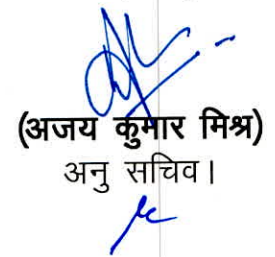 (अजय कुमार मिश्र)
अनु सचिव।